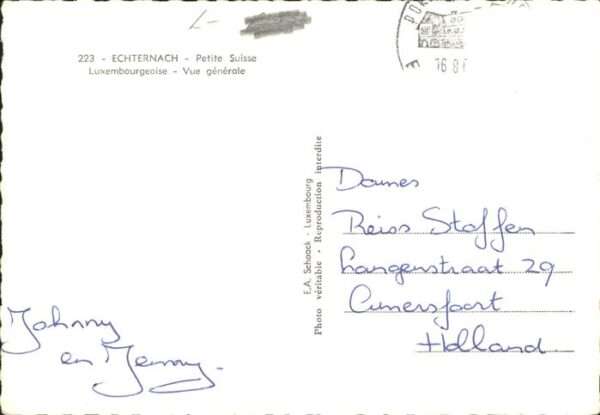 L-
223 - ECHTERNACH - Petite Suisse
Luxembourgeoise - Vue générale
E.A. Schaack - Luxembourg
Photo véritable - Reproduction interdite
Dames
Reiss Stoffen
Langenstraat 29
Amersfoort
Holland
Johnny
en Jenny.